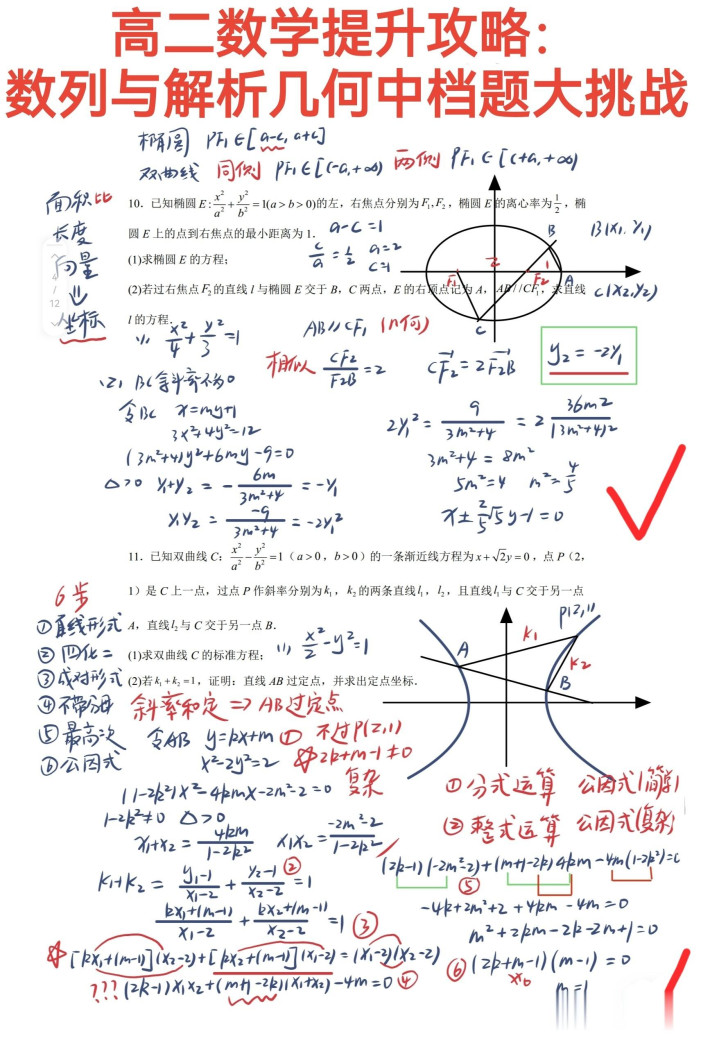 高二数学提升攻略:
数列与解析几何中档题大挑战
椭圆 PF₁∈[a-c, a+c]
双曲线 同侧 PF₁∈[c-a,+∞) 两侧 PF₁∈[c+a,+∞)
面积比
长度
向量
⇓
坐标
4
12
10. 已知椭圆 E: x²/a² + y²/b² = 1(a > b > 0)的左、右焦点分别为 F₁,F₂，椭圆 E 的离心率为 1/2，椭
圆 E 上的点到右焦点的最小距离为 1.
a-c=1
c/a = 1/2 a=2
c=1
(1)求椭圆 E 的方程；
(2)若过右焦点 F₂ 的直线 l 与椭圆 E 交于 B，C 两点，E 的右顶点记为 A，AB//CF₁，求直线
l 的方程.
B
F₁
2
1
F₂
A
C
B(x₁, y₁)
C(x₂,y₂)
(1) x²/4 + y²/3 =1
AB∥CF₁ (几何)
相似 CF₂/F₂B =2
CF₂ = 2F₂B
y₂ = -2y₁
(2) BC斜率不为0
令BC x=my+1
3x²+4y²=12
(3m²+4)y²+6my-9=0
Δ>0 y₁+y₂ = - 6m/3m²+4 = -y₁
y₁y₂ = -9/3m²+4 = -2y₁²
2y₁² = 9/3m²+4 = 2 36m²/(3m²+4)²
3m²+4 = 8m²
5m²=4 m²=4/5
x±2/5√5y-1=0
11. 已知双曲线 C: x²/a² - y²/b² =1（a>0，b>0）的一条渐近线方程为 x+√2y=0，点 P（2，
1）是 C 上一点，过点 P 作斜率分别为 k₁，k₂ 的两条直线 l₁，l₂，且直线 l₁ 与 C 交于另一点
A，直线 l₂ 与 C 交于另一点 B.
(1)求双曲线 C 的标准方程；
(1) x²/2 - y²=1
(2)若 k₁+k₂=1，证明：直线 AB 过定点，并求出定点坐标.
6步
①直线形式
②四化二
③成对形式
④不带分母
⑤最高次
⑥公因式
P(2,1)
A
k₁
k₂
B
斜率和定 => AB过定点
令AB y=kx+m ① 不过P(2,1)
x²-2y²=2 2k+m-1≠0
(1-2k²)x²-4kmx-2m²-2=0 复杂
1-2k²≠0 Δ>0
x₁+x₂ = 4km/1-2k² x₁x₂ = -2m²-2/1-2k²
k₁+k₂ = y₁-1/x₁-2 + y₂-1/x₂-2 =1 ②
kx₁+(m-1)/x₁-2 + kx₂+(m-1)/x₂-2 =1 ③
[kx₁+(m-1)](x₂-2)+[kx₂+(m-1)](x₁-2)=(x₁-2)(x₂-2)
??? (2k-1)x₁x₂+(m+1-2k)(x₁+x₂)-4m=0 ④
①分式运算 公因式(简单)
②整式运算 公因式(复杂)
(2k-1)(-2m²-2)+(m+1-2k)4km-4m(1-2k²)=0
⑤
-4k+2m²+2+4km-4m=0
m²+2km-2k-2m+1=0
⑥ (2k+m-1)(m-1)=0
≠0
m=1